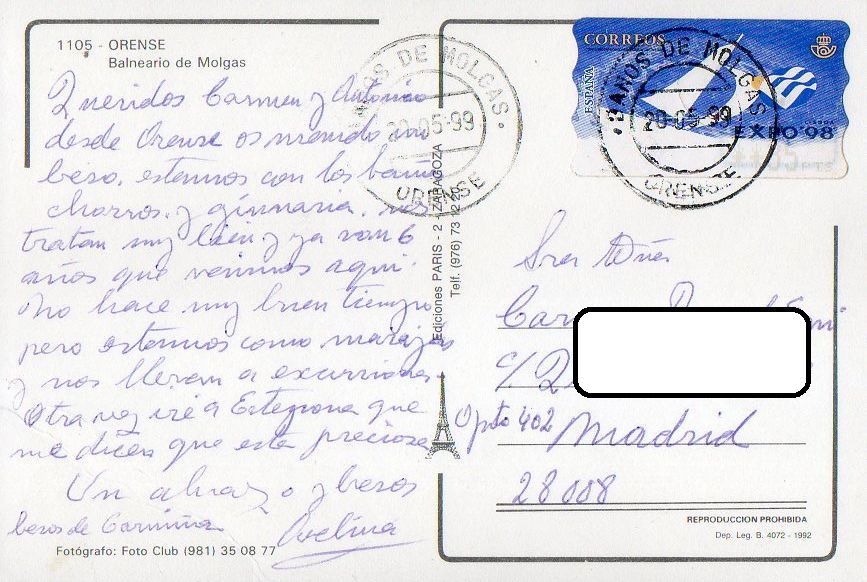 1105 - ORENSE
Balneario de Molgas
Queridos Carmen y Antonio
desde Orense os mando un
beso, estamos con los baños
chorros, y gimnasia, nos
tratan muy bien y ya van 6
años que venimos aqui.
No hace muy buen tiempo
pero estamos como marajas
y nos llevan a excursiones
Otra vez iré a Estepona que
me dicen que esta preciosa
Un abrazo y besos
besos de Carmiña
Avelina
Fotógrafo: Foto Club (981) 35 08 77
BAÑOS DE MOLGAS
20-05-99
ORENSE
Ediciones PARIS - 2 - ZARAGOZA
Telf. (976) 73 12 20
CORREOS
ESPAÑA
LISBOA
EXPO'98
BAÑOS DE MOLGAS
20-05-99
ORENSE
Sra Doña
Car
c/
Apto 402 Madrid
28008
REPRODUCCION PROHIBIDA
Dep. Leg. B. 4072 - 1992